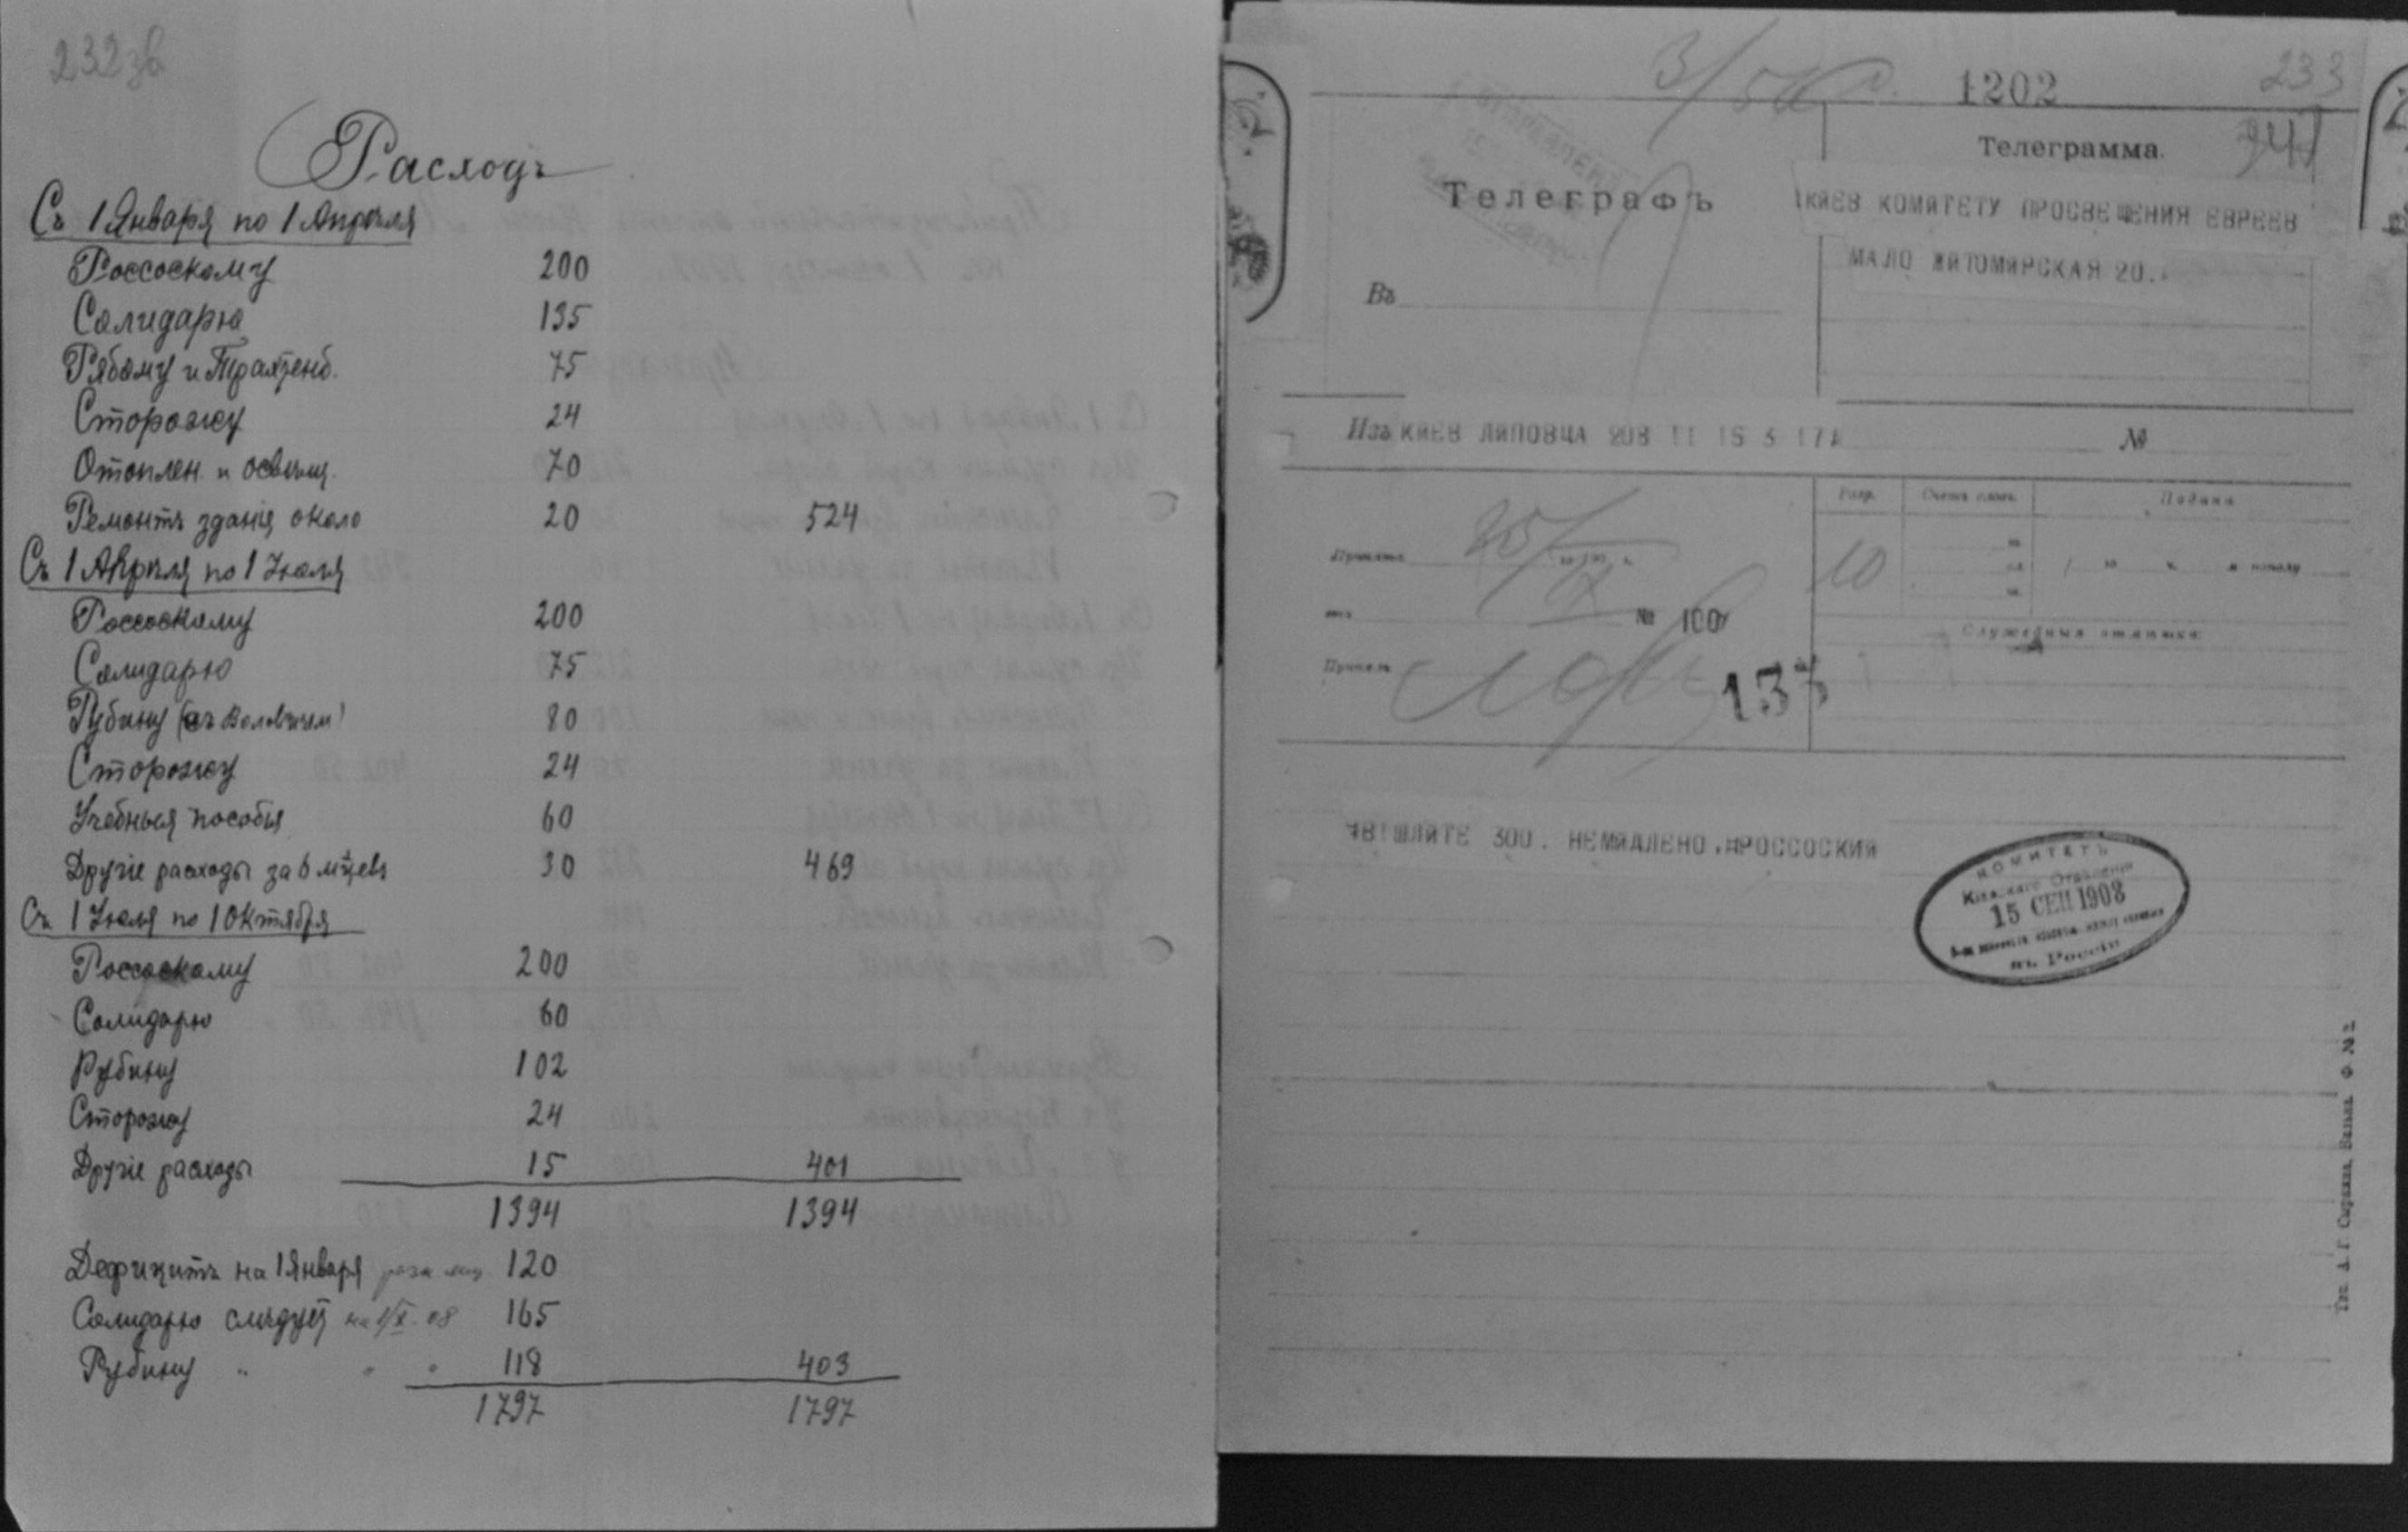 232 зв
Расходъ
Съ 1 Января по 1 Апрѣля
Россоскому 200
Солидарю 135
Рябому и Трахтенб. 75
Сторожу 24
Отоплен. и освѣщ. 70
Ремонтъ зданія около 20 524
Съ 1 Апрѣля по 1 Июля
Россоскому 200
Солидарю 75
Рубину (съ Воловичем) 80
Сторожу 24
Учебныя пособія 60
Другіе расходы за 6 мѣцевъ 30 469
Съ 1 Июля по 1 Октября
Россоскому 200
Солидарю 60
Рубину 102
Сторожу 24
Другіе расходы 15 401
1394 1394
Дефицитъ на 1 Января 120
Солидарю слѣдует на 1/X 08 165
Рубину " " " 118 403
1797 1797
1202
233
Телеграмма.
Телеграфъ
КИЕВ КОМИТЕТУ ПРОСВЕЩЕНИЯ ЕВРЕЕВ
МАЛО ЖИТОМИРСКАЯ 20.
Въ
Изъ КИЕВ ЛИПОВЦА 208 11 15 3 17
№
Разр.
Счетъ словъ.
Подана
10
Принята
№ 100
Принялъ
Служебныя отмѣтки:
137
ВЫШЛИТЕ 300. НЕМИДЛЕНО. РОССОСКИЙ
КОМИТЕТЪ
Кіевскаго Отдѣленія
15 СЕН 1908
въ Россіи